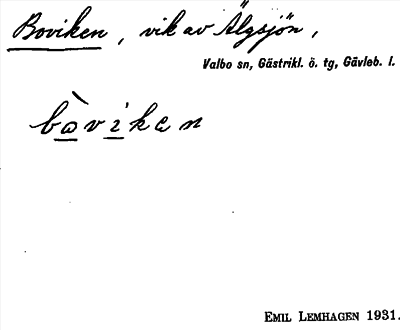 Boviken, vik av Älgsjön,
Valbo sn, Gästrikl. ö. tg, Gävleb. l.
bòviken
EMIL LEMHAGEN 1931.